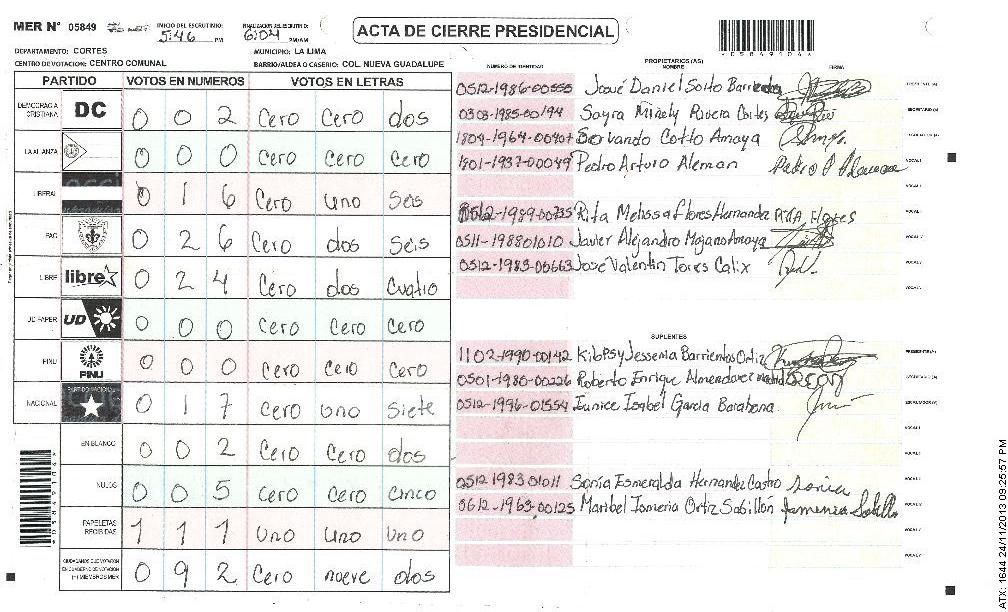 MER N° 05849
INICIO DEL ESCRUTINIO:
5:46 PM
FINALIZACION DEL ESCRUTINIO:
6:04 PM/AM
ACTA DE CIERRE PRESIDENCIAL
DEPARTAMENTO: CORTES
MUNICIPIO: LA LIMA
CENTRO DE VOTACION: CENTRO COMUNAL
BARRIO/ALDEA O CASERIO: COL. NUEVA GUADALUPE
PARTIDO VOTOS EN NUMEROS VOTOS EN LETRAS
DEMOCRACIA CRISTIANA DC 0 0 2 Cero Cero dos
LA ALIANZA 0 0 0 Cero Cero Cero
LIBERAL 0 1 6 Cero uno Seis
PAC 0 2 6 Cero dos Seis
LIBRE libre 0 2 4 Cero dos Cuatro
UD-FAPER UD 0 0 0 Cero Cero Cero
PINU PINU 0 0 0 Cero Cero Cero
NACIONAL 0 1 7 Cero uno Siete
EN BLANCO 0 0 2 Cero Cero dos
NULOS 0 0 5 Cero Cero Cinco
PAPELETAS RECIBIDAS 1 1 1 Uno Uno Uno
0 9 2 Cero nueve dos
NUMERO DE IDENTIDAD PROPIETARIOS (AS) NOMBRE FIRMA
0512-1986-00555 José Daniel Soito Barrientos
0303-1985-00194 Sayra Minely Rivera Cortes
1804-1964-00407 Servando Cotto Amaya
1801-1937-00049 Pedro Arturo Aleman
0512-1989-00735 Rita Melissa Flores Hernandez
0511-198801010 Javier Alejandro Mojano Amaya
0512-1983-00663 José Valentin Torres Calix
SUPLENTES
1102-1990-00142 Kibpsy Jessenia Barrientos Ortiz
0501-1980-00226 Roberto Enrique Almendarez
0512-1996-01554 Eunice Isabel Garcia Barahona
0512 1983 01011 Sonia Esmeralda Hernandez Castro
0612-1963-00125 Maribel Ismenia Ortiz Sabillón
ATX: 1644 24/11/2013 09:25:57 PM